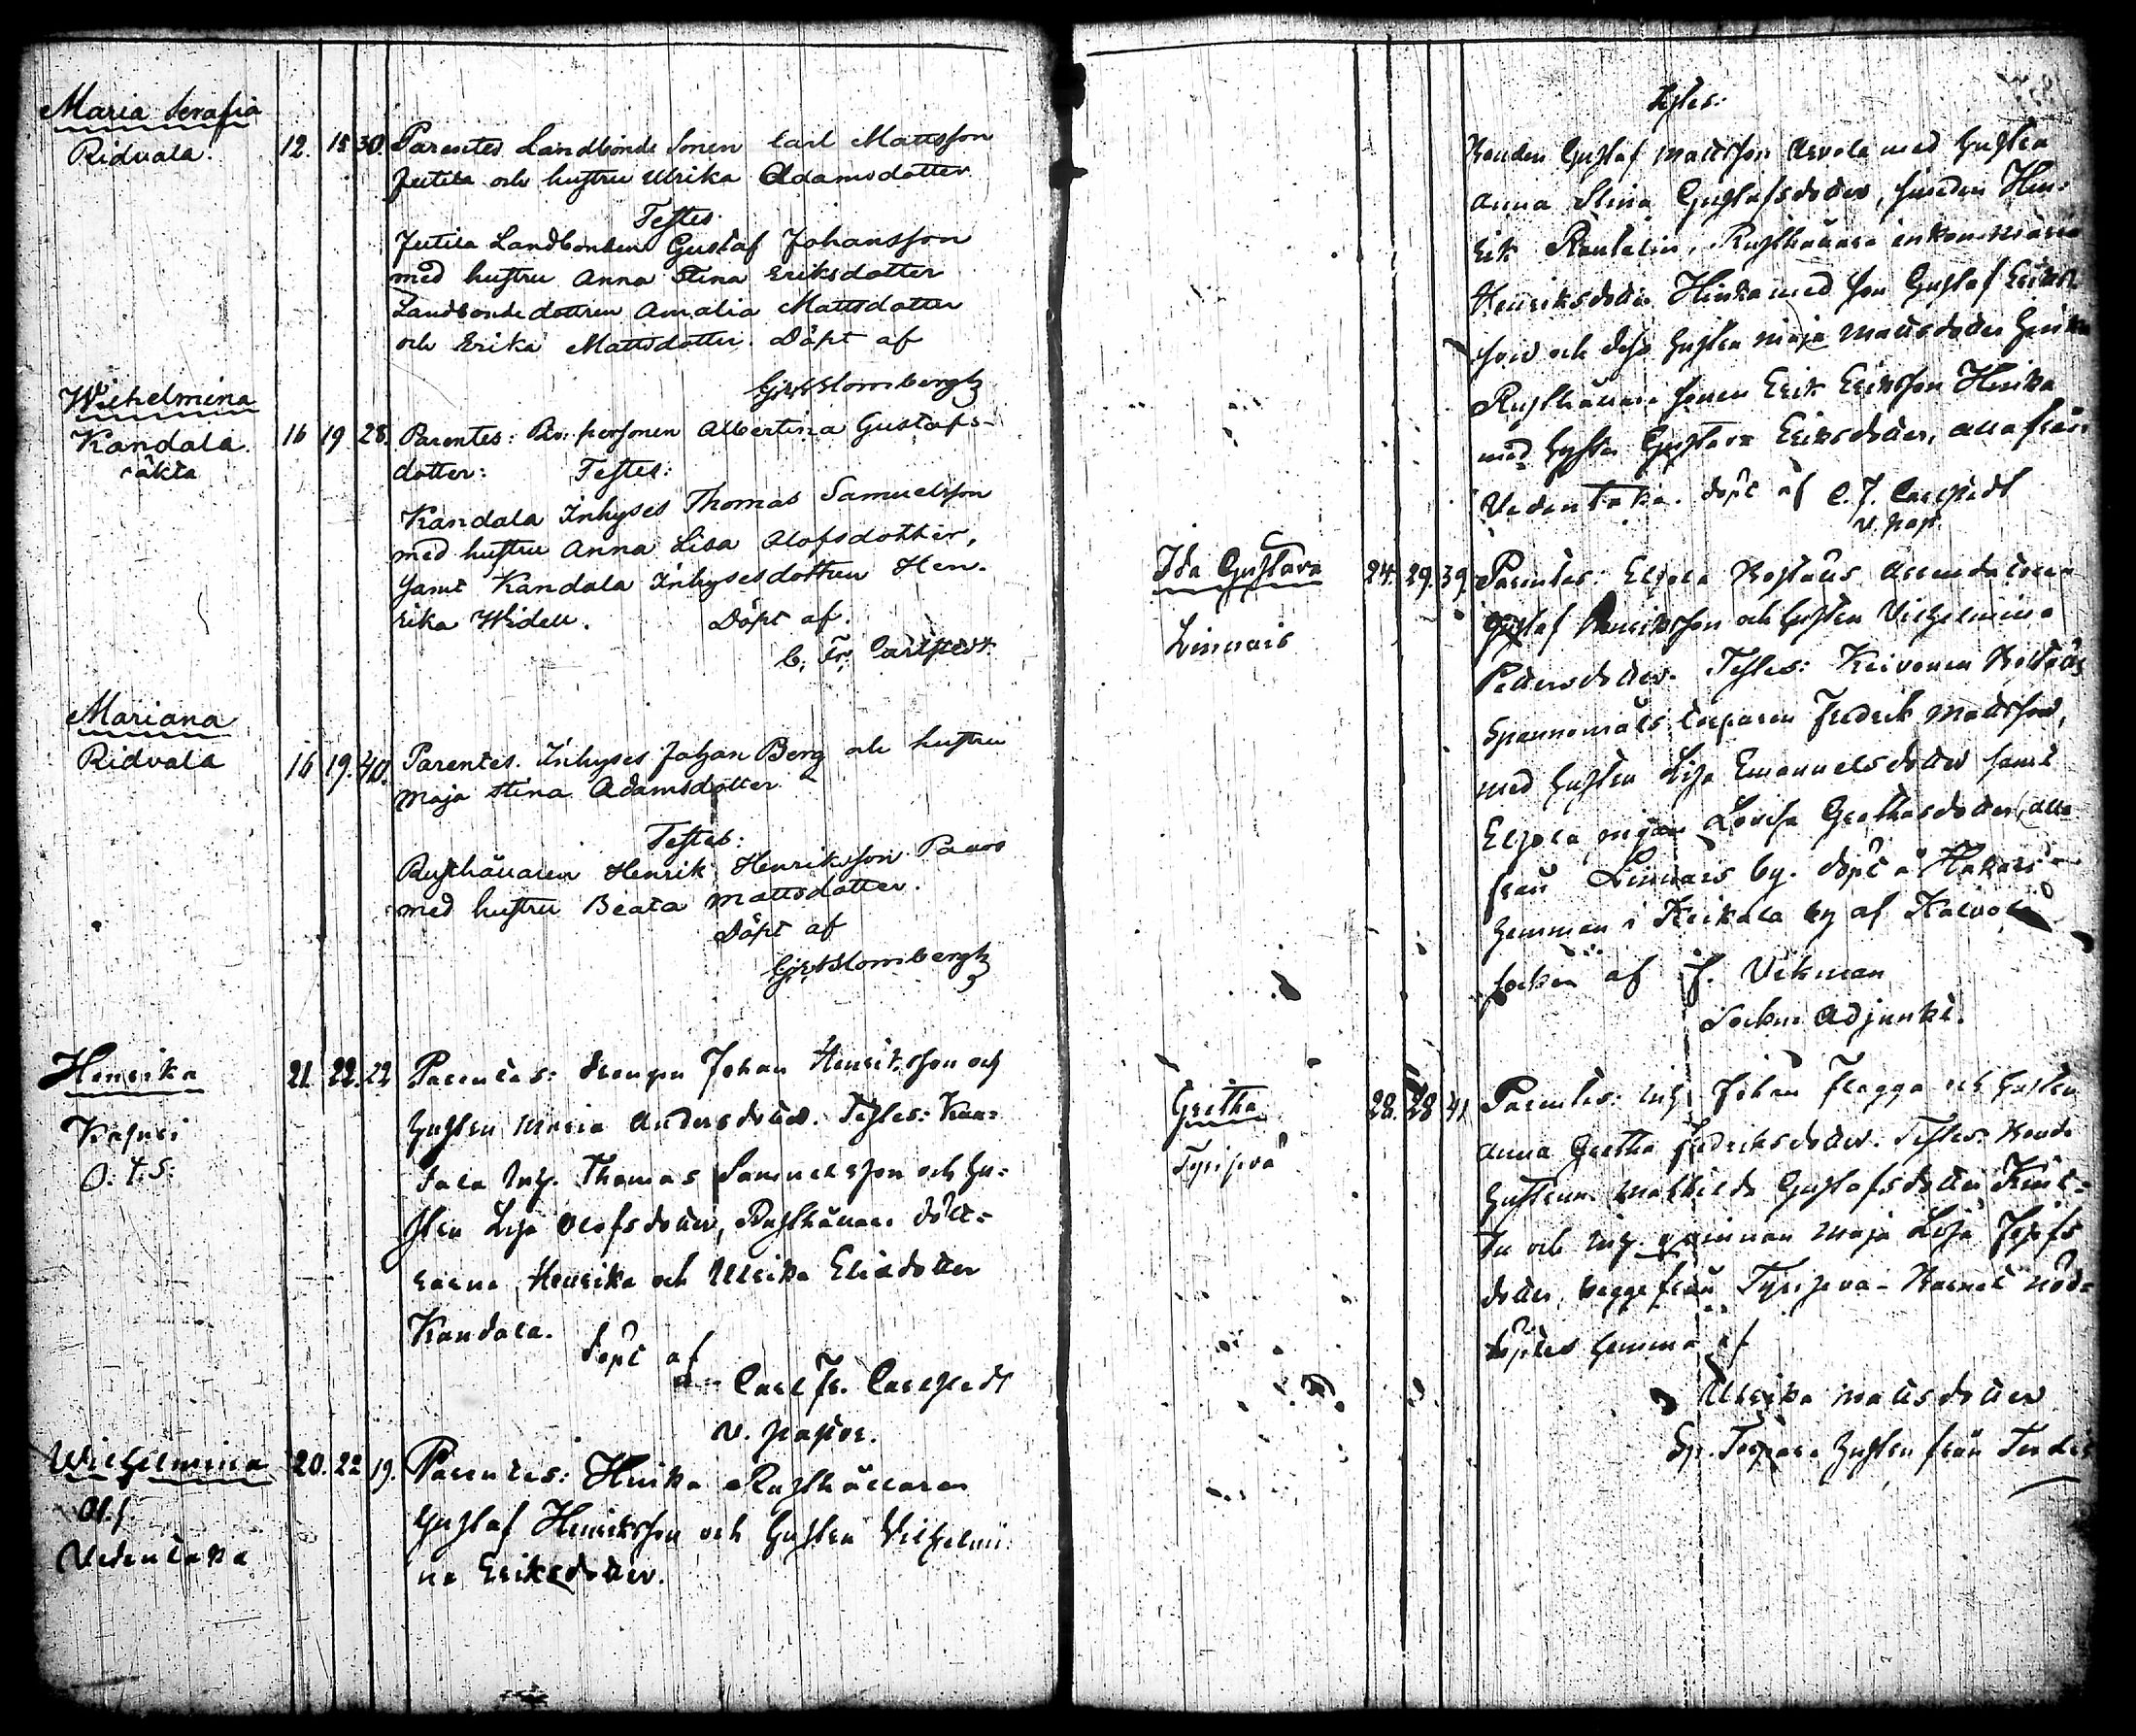 Maria Serafia
Ridvala. 12. 15 30. Parentes Landbonde Sonen Carl Mattsson
Jutila och hustru Ulrika Adamsdotter
Testes
Jutila Landbonden Gustaf Johansson
med hustru Anna Stina Eriksdotter
Landbondedottren Amalia Mattsdotter
och Erika Mattsdotter. Döpt af
Blombergh
Wilhelmina
Kandala 16 19 28. Parentes: Qv. personen Albertina Gustafs-
oäkta dotter: Testes:
Kandala Inhyses Thomas Samuelsson
med hustru Anna Lisa Olofsdotter,
Samt Kandala Inhysesdottren Hen-
rika Widell. Döpt af.
C. Fr. Carlstedt
Mariana
Ridvala 16 19. 40. Parentes. Inhyses Johan Berg och hustru
Maja Stina Adamsdotter
Testes:
Rusthållaren Henrik Henriksson Paavo
med hustru Beata Mattsdotter.
Döpt af
Blombergh
Henrika 21. 22. 22 Parentes: Drengen Johan Henriksson och
hustru Maria Andersdotter. Testes: Kan-
dala Inh. Thomas Samuelsson och hu-
stru Lisa Olofsdotter, Rusthållare dött-
rarna Henrika och Ulrika Eliedotter
Kandala. Döpt af
Carl Fr. Carlstedt
v. pastor.
Wilhelmina 20. 22 19. Parentes: Hinka Rusthållaren
Vedentaka Gustaf Henriksson och hustru Vilhelmi-
na Eriksdotter.
Testes:
Bonden Gustaf Mattsson Arvola med hustru
Anna Stina Gustafsdotter, Smeden Hen-
rik Rentelin, Rusthållare enkan Maria
Henriksdotter Hinka med son Gustaf Eriks-
son och dess hustru Maja Mattsdotter Hinka
Rusthållare sonen Erik Eriksson Hinka
med hustru Gustava Eriksdotter, alla från
Vedentaka. döpt af C. F. Carlstedt
v. past.
Ida Gustava 24. 29. 39. Parentes: Eljola Boställs Arrendatorn
Linnais Gustaf Henriksson och hustru Vilhelmina
Pettersdotter. Testes: Keivonen Boställs
Spannemåls torparen Fredrik Mattsson,
med hustru Lisa Emanuelsdotter samt
Eljola pigan Lovisa Grethasdotter, alla
från Linnais by. döpt å
hemman i Keikala by af Kalvola
socken af J. Vikman
Sockne Adjunkt.
Gretha 28. 28 41 Parentes: Inh. Johan Flagga och hustru
Tyrisevä Anna Gretha Fredriksdotter. Testes: Bonde
hustrun Mathilda Gustafsdotter
och Inh. qvinnan Maja Lisa Josefs
dotter, begge från Tyrisevä. Barnet nöd-
döptes hemma af
Ulrika Mattsdotter
Sp. Torpare hustru från